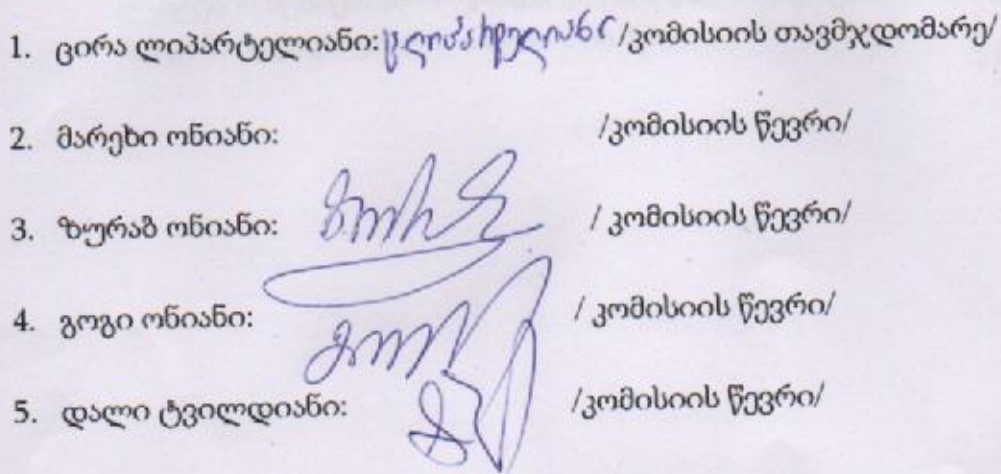 1. ცირა ლიპარტელიანი: ც.ლიპარტელიანი /კომისიის თავმჯდომარე/
2. მარეხი ონიანი: /კომისიის წევრი/
3. ზურაბ ონიანი: / კომისიის წევრი/
4. გოგი ონიანი: / კომისიის წევრი/
5. დალი ტვილდიანი: /კომისიის წევრი/